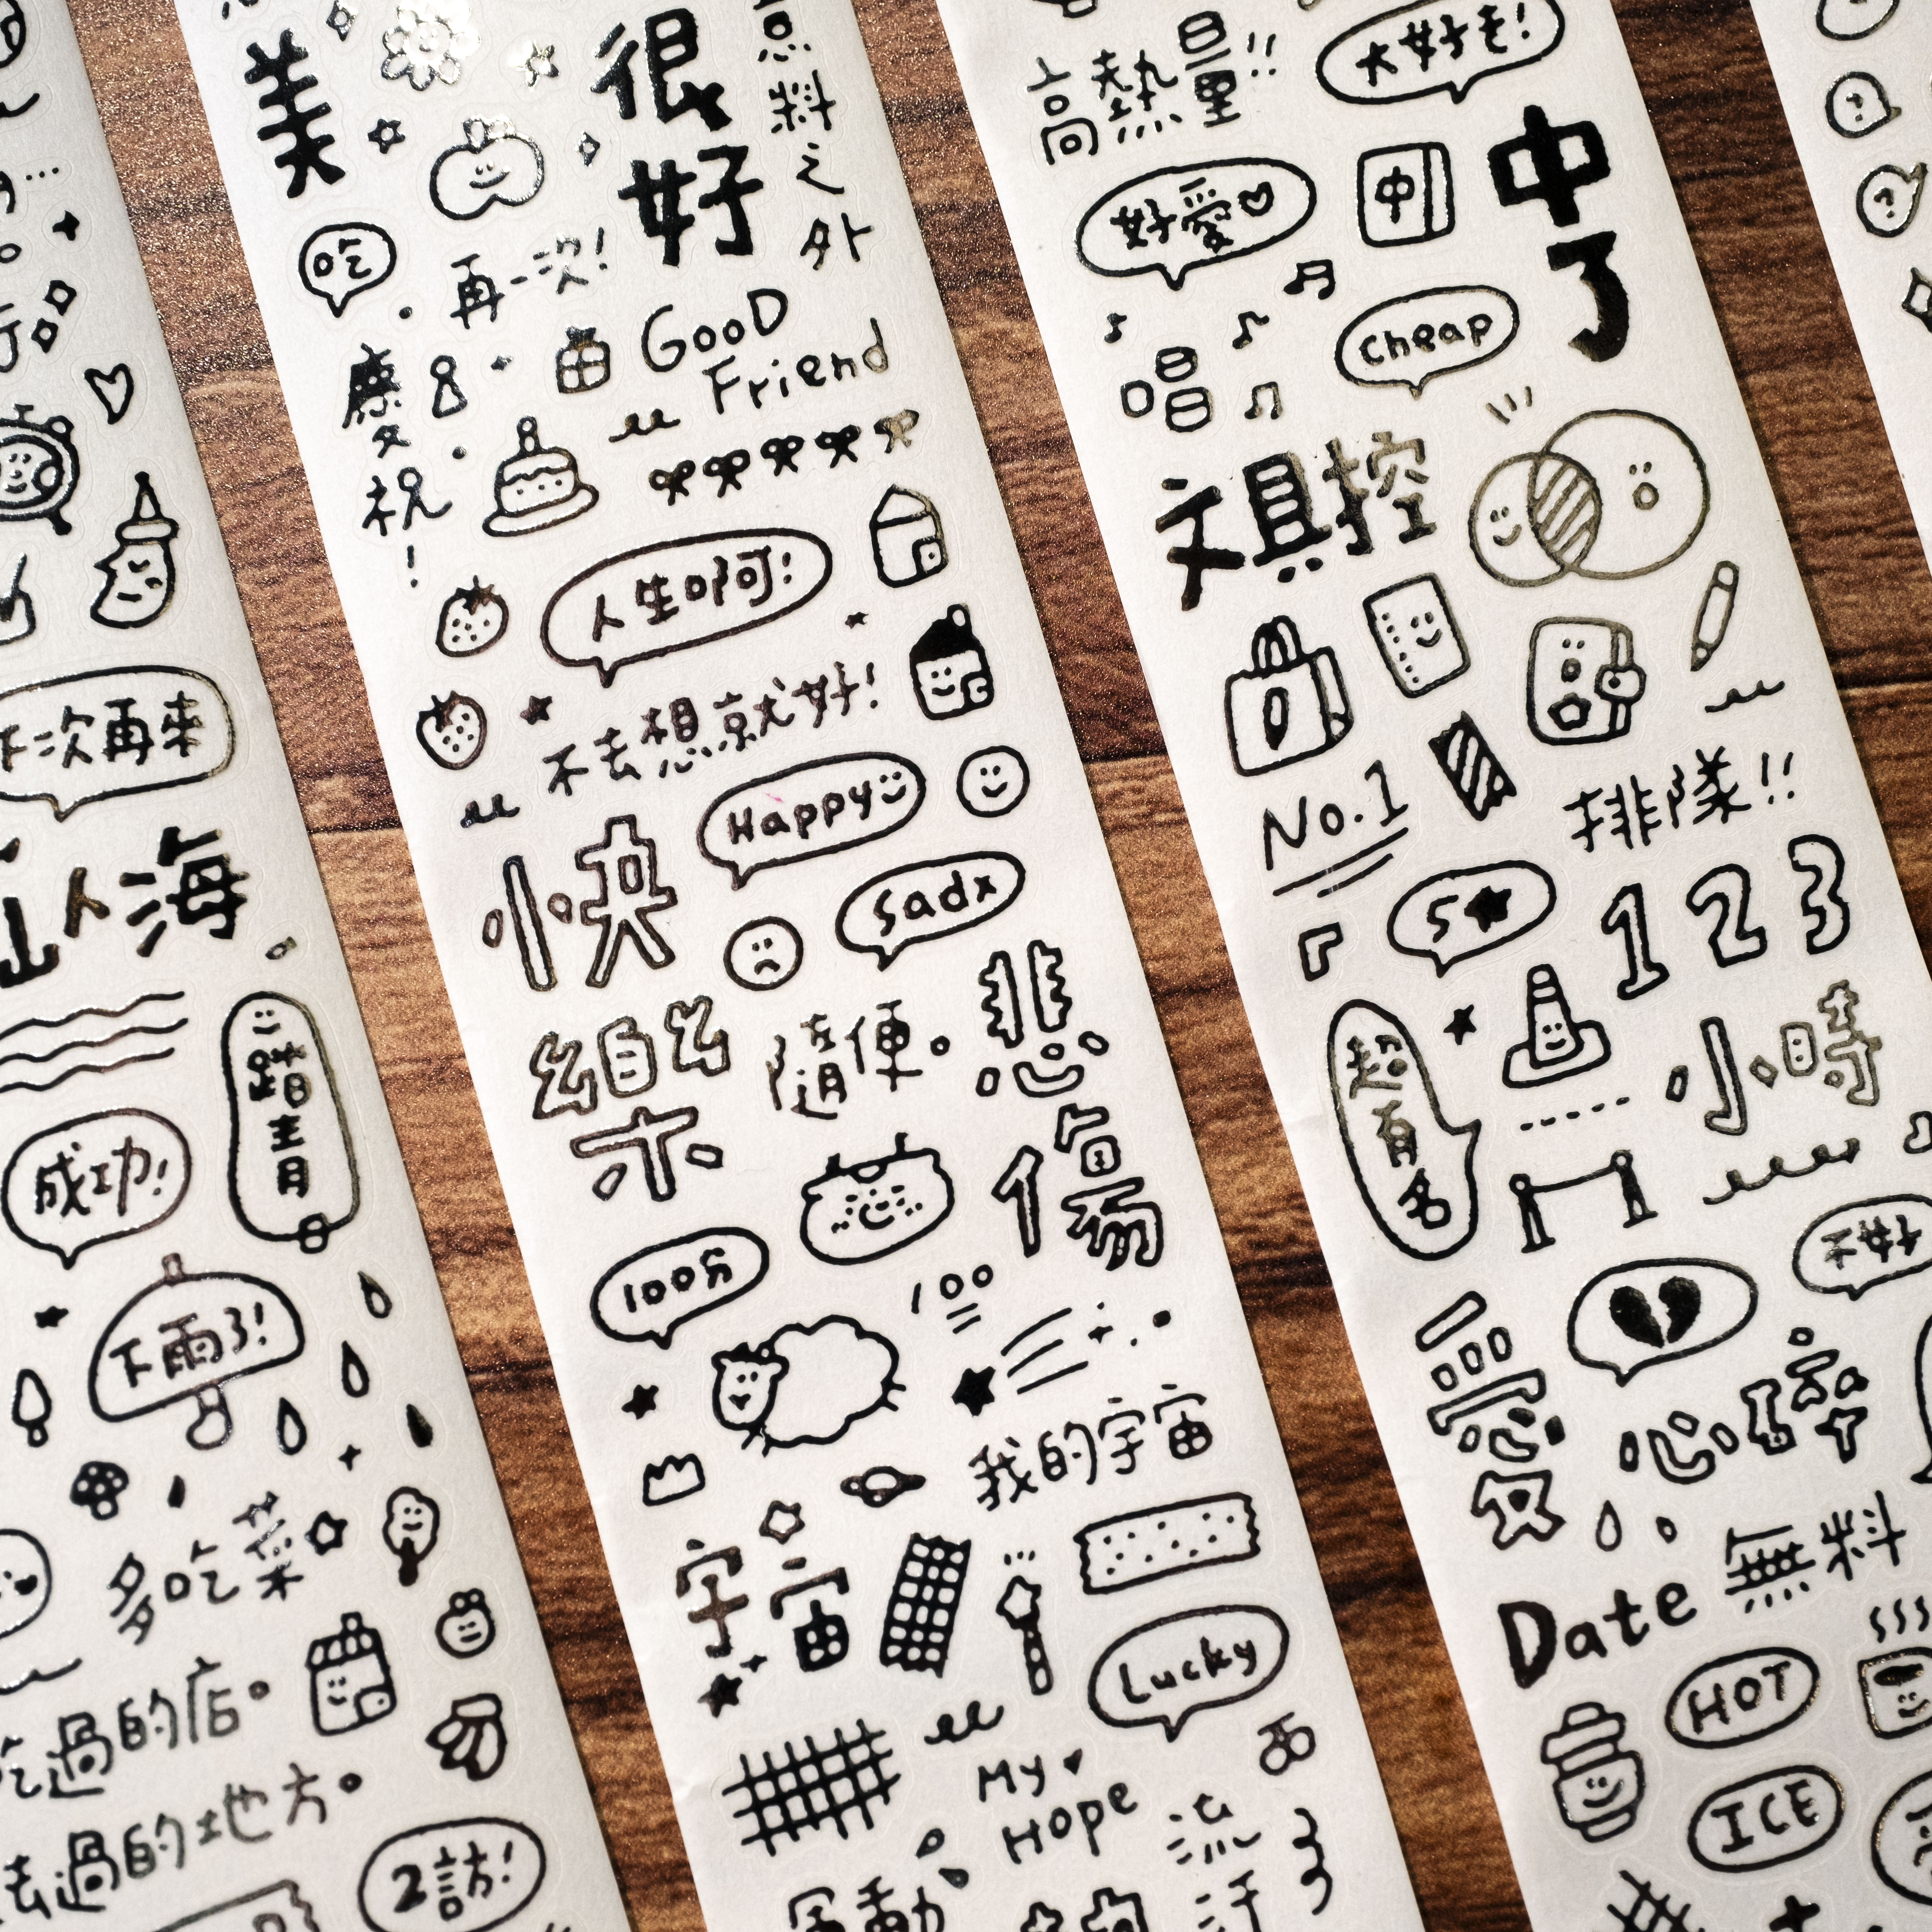 下次再來
山人海
踏青
成功!
下雨了!
多吃菜
吃過的店。
去過的地方。
2訪!
美
很好
意料之外
吃
再一次!
慶祝!
GOOD
Friend
人生啊!
不去想就好!
Happy
快樂
Sadx
隨便。
悲傷
100分
100
我的宇宙
宇宙
Lucky
My
Hope
運動
流汗
高熱量!!
大好き!
好愛
中
中了
cheap
唱
文具控
No.1
排隊!!
5★
1 2 3
超有名
小時
不好
愛
心碎
無料
Date
HOT
ICE